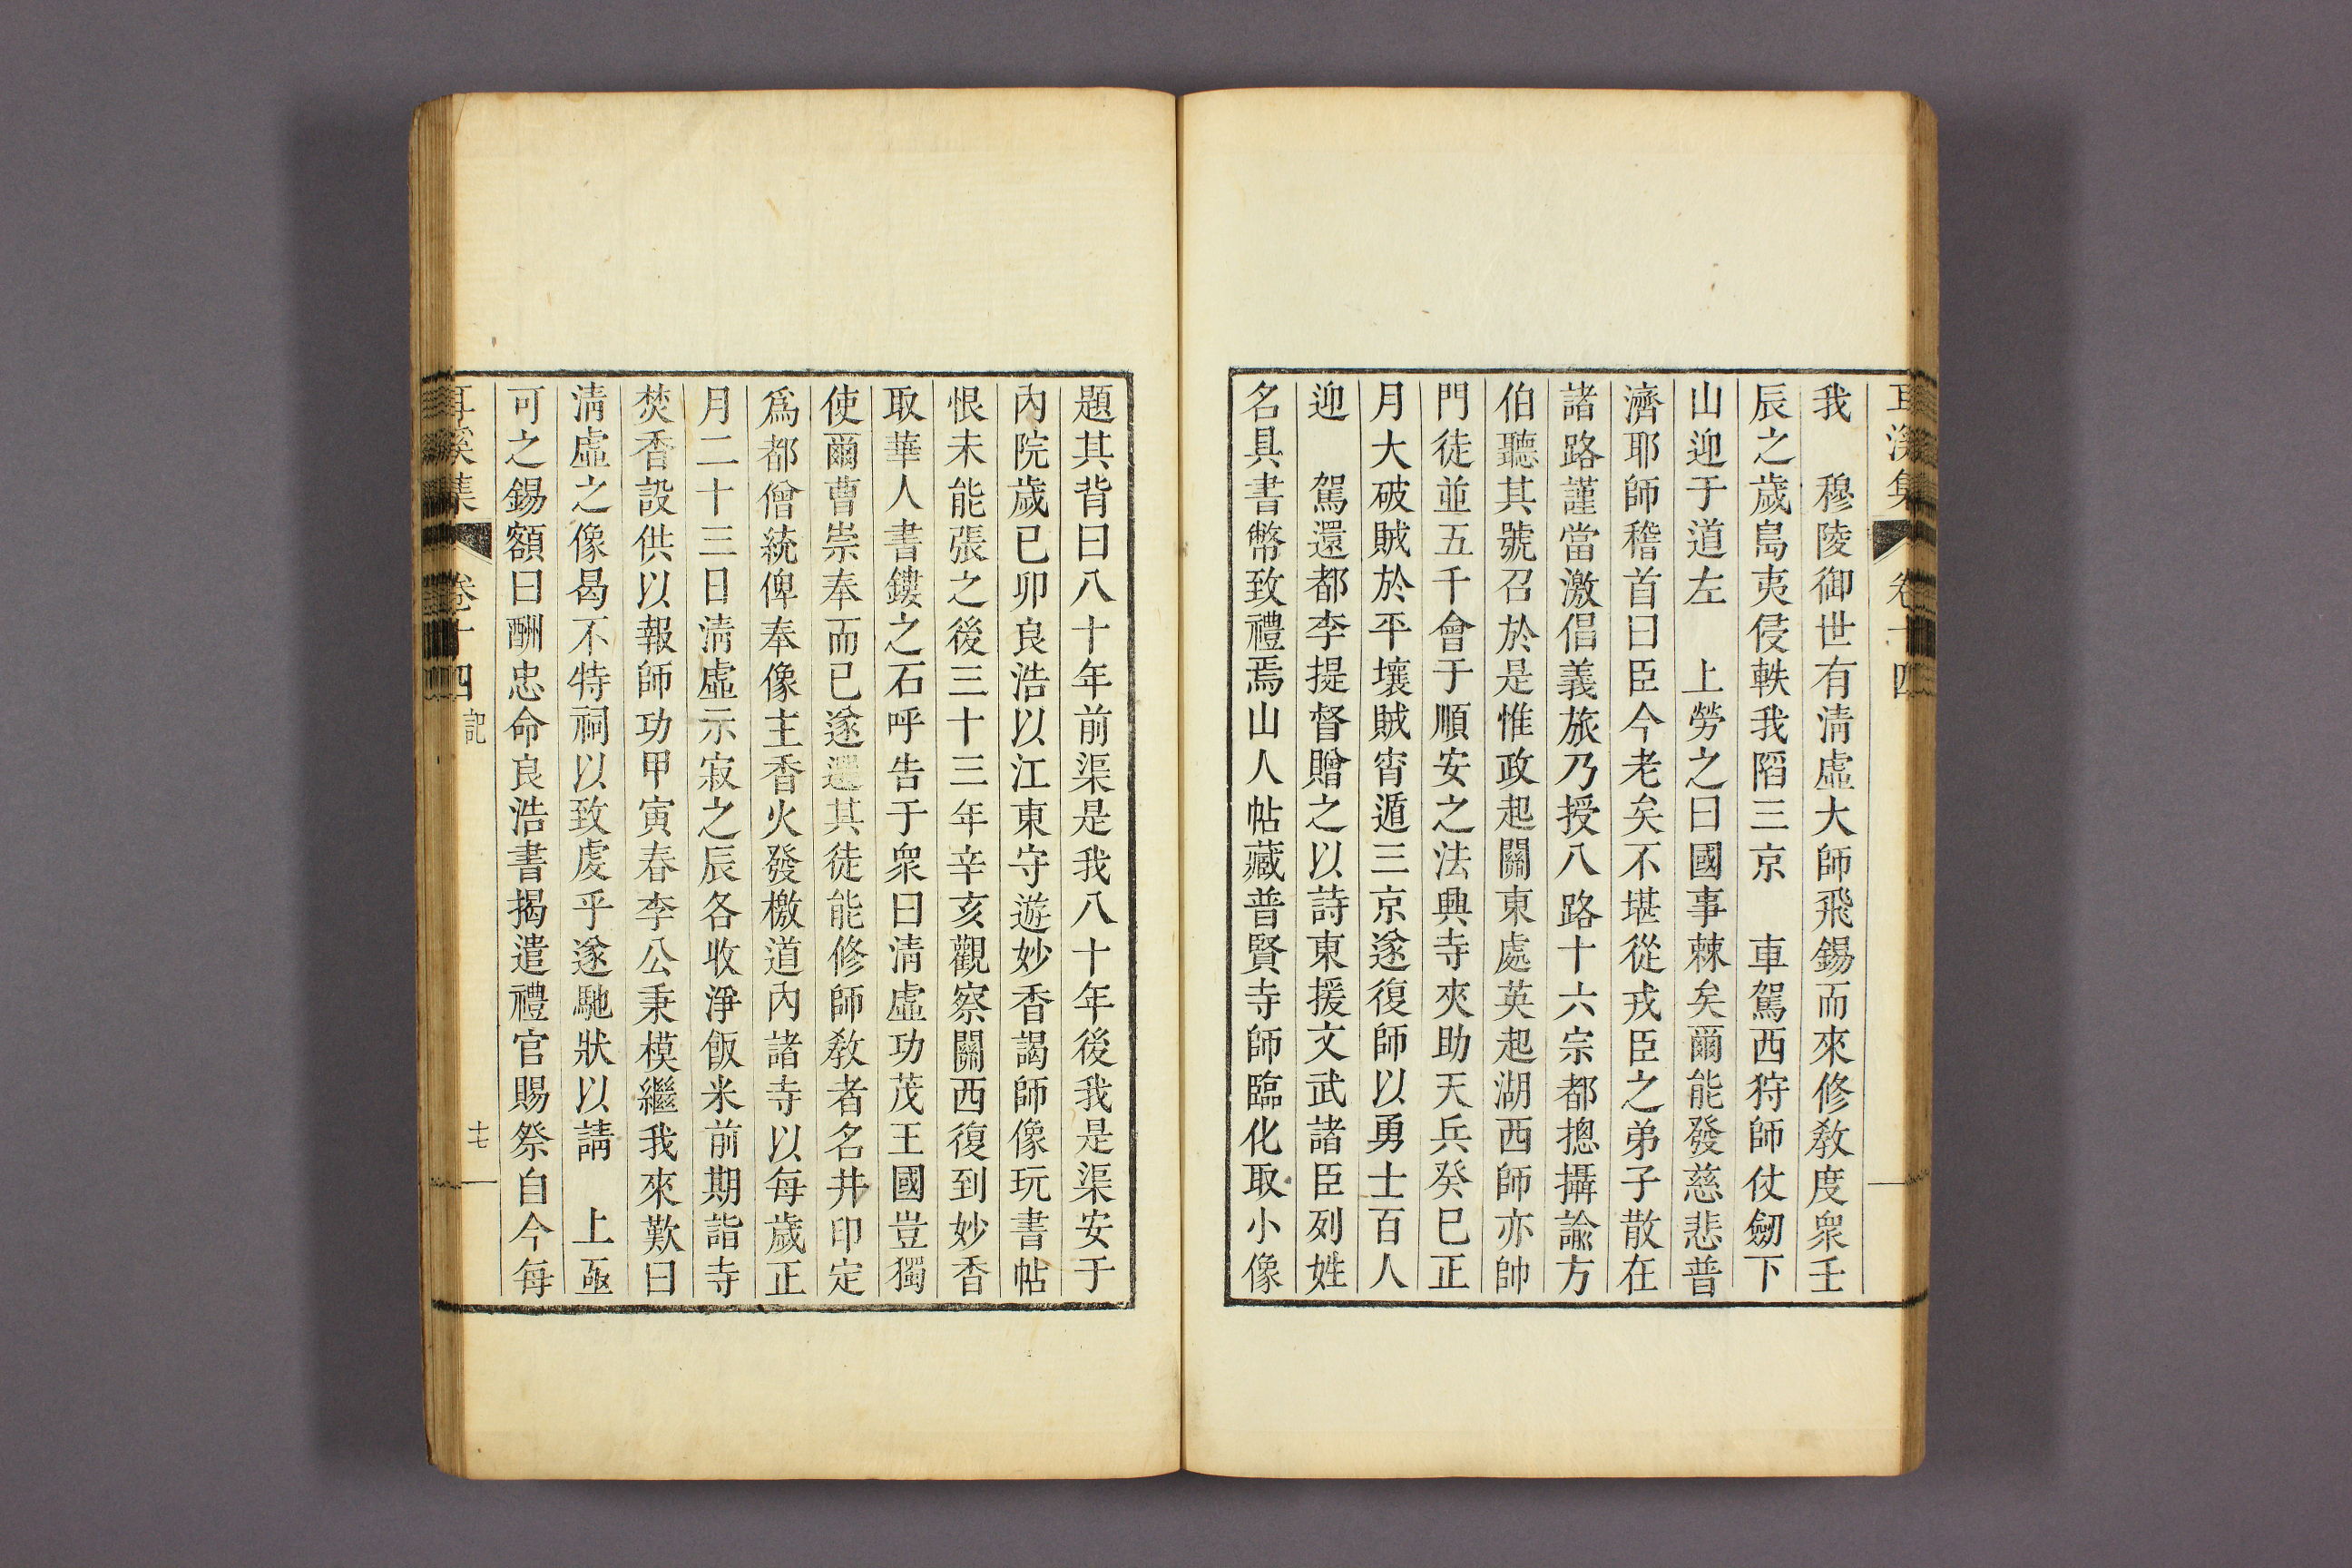 耳溪集 卷十四
我 穆陵御世有淸虛大師飛錫而來修敎度衆壬
辰之歲島夷侵軼我陷三京 車駕西狩師仗劒下
山迎于道左 上勞之曰國事棘矣爾能發慈悲普
濟耶師稽首曰臣今老矣不堪從戎臣之弟子散在
諸路謹當激倡義旅乃授八路十六宗都摠攝諭方
伯聽其號召於是惟政起關東處英起湖西師亦帥
門徒並五千會于順安之法興寺夾助天兵癸巳正
月大破賊於平壤賊宵遁三京遂復師以勇士百人
迎 駕還都李提督贈之以詩東援文武諸臣列姓
名具書幣致禮焉山人帖藏普賢寺師臨化取小像
題其背曰八十年前渠是我八十年後我是渠安于
內院歲已卯良浩以江東守遊妙香謁師像玩書帖
恨未能張之後三十三年辛亥觀察關西復到妙香
取華人書鏤之石呼告于衆曰淸虛功茂王國豈獨
使爾曹崇奉而已遂選其徒能修師敎者名井印定
爲都僧統俾奉像主香火發檄道內諸寺以每歲正
月二十三日淸虛示寂之辰各收淨飯米前期詣寺
焚香設供以報師功甲寅春李公秉模繼我來歎曰
淸虛之像曷不特祠以致虔乎遂馳狀以請 上亟
可之錫額曰酬忠命良浩書揭遣禮官賜祭自今每
耳溪集 卷十四 記 十七